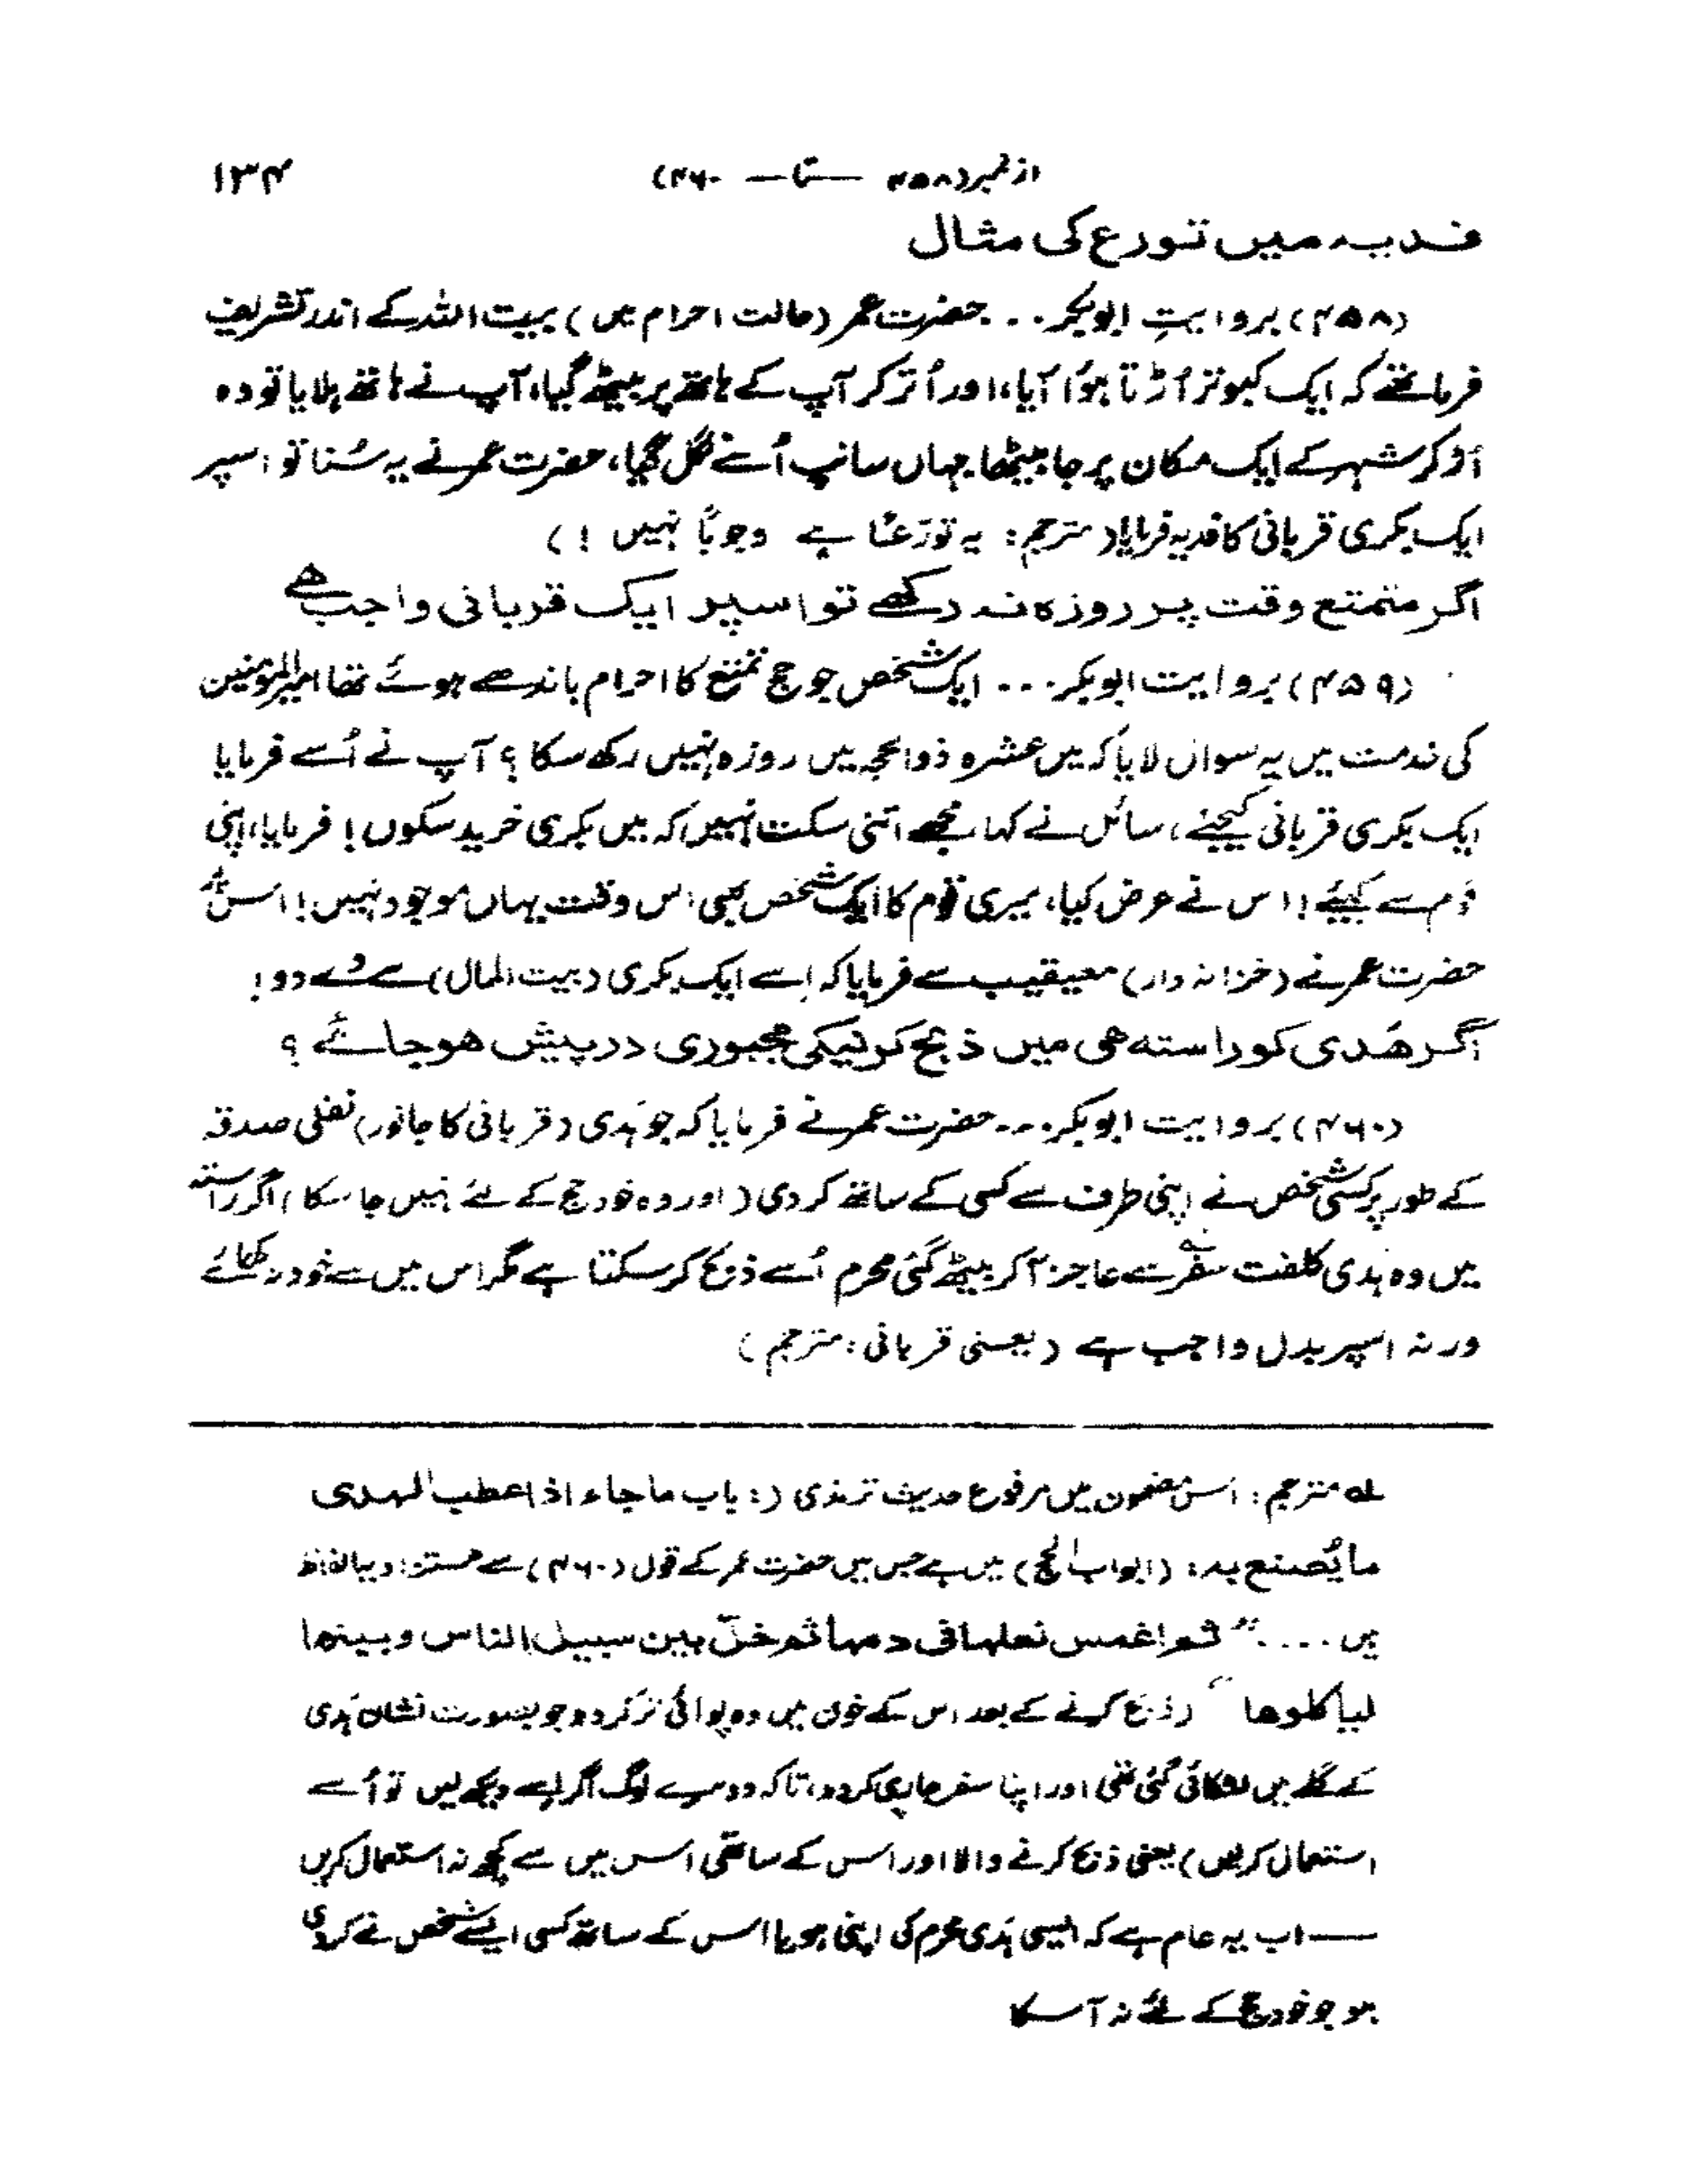 از نمبر (۴۵۸ — تا — ۴۶۰) ۱۳۴
فدیہ میں تورع کی مثال
(۴۵۸) بروایتِ ابوبکر... حضرت عمر (حالت احرام میں) بیت اللہ کے اندر تشریف
فرما تھے کہ ایک کبوتر اُڑتا ہوُا آیا، اور اُتر کر آپ کے ہاتھ پر بیٹھ گیا، آپ نے ہاتھ ہلایا تو وہ
اُڑ کر شہر کے ایک مکان پر جا بیٹھا جہاں سانپ اُسے نگل گیا، حضرت عمر نے یہ سُنا تو اسپر
ایک بکری قربانی کا فدیہ فرمایا (مترجم: یہ تورّعًا ہے وجوبًا نہیں !)
اگر متمتع وقت پر روزہ نہ رکھے تو اسپر ایک قربانی واجب ھے
(۴۵۹) بروایت ابوبکر... ایک شخص جو حج تمتع کا احرام باندھے ہوئے تھا امیرالمومنین
کی خدمت میں یہ سوال لایا کہ میں عشرہ ذوالحجہ میں روزہ نہیں رکھ سکا ؟ آپ نے اُسے فرمایا
ایک بکری قربانی کیجئے، سائل نے کہا مجھے اتنی سکت نہیں کہ میں بکری خرید سکوں! فرمایا، اپنی
قوم سے کہیئے! اس نے عرض کیا، میری قوم کا ایک شخص بھی اس وقت یہاں موجود نہیں! اس پر
حضرت عمر نے (خزانہ دار) معیقیب سے فرمایا کہ اِسے ایک بکری (بیت المال) سے دے دو!
اگر ھَدی کو راستہ ھی میں ذبح کرنیکی مجبوری درپیش ھوجائے ؟
(۴۶۰) بروایت ابوبکر... حضرت عمر نے فرمایا کہ جو ہَدی (قربانی کا جانور) نفلی صدقہ
کے طور پر کسی شخص نے اپنی طرف سے کسی کے ساتھ کر دی (اور وہ خود حج کے لئے نہیں جا سکا) اگر راستہ
میں وہ ہدی کلفت سفر سے عاجز آ کر بیٹھ گئی محرم اُسے ذبح کر سکتا ہے مگر اس میں سے خود نہ کھائے
ورنہ اسپر بدل واجب ہے (یعنی قربانی: مترجم)
لہ مترجم: اس مضمون میں مرفوع حدیث ترمذی (: باب ما جاء اذا عطب الہدی
ما یُصنع بہ: (ابواب الحج) میں ہے جس میں حضرت عمر کے قول (۴۶۰) سے مستزاد یہ الفاظ
ہیں .... ”ثم اغمس نعلہا فی دمہا ثم خلّ بین سبیل الناس و بینھا
لیاکلوھا“ (ذبح کرنے کے بعد اس کے خون میں وہ پوائی تر کر دو جو بصورت نشان ہَدی
کے گلے میں لٹکائی گئی تھی اور اپنا سفر جاری کر دو، تاکہ دوسرے لوگ اگر اسے دیکھ لیں تو اُسے
استعمال کر لیں) یعنی ذبح کرنے والا اور اس کے ساتھی اس میں سے کچھ نہ استعمال کریں
— اب یہ عام ہے کہ ایسی ہَدی محرم کی اپنی ہو یا اس کے ساتھ کسی ایسے شخص نے کر دی
ہو جو خود حج کے لئے نہ آ سکا